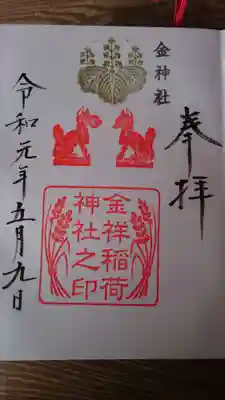 奉拝
金神社
金祥稲荷
神社之印
令和元年五月九日